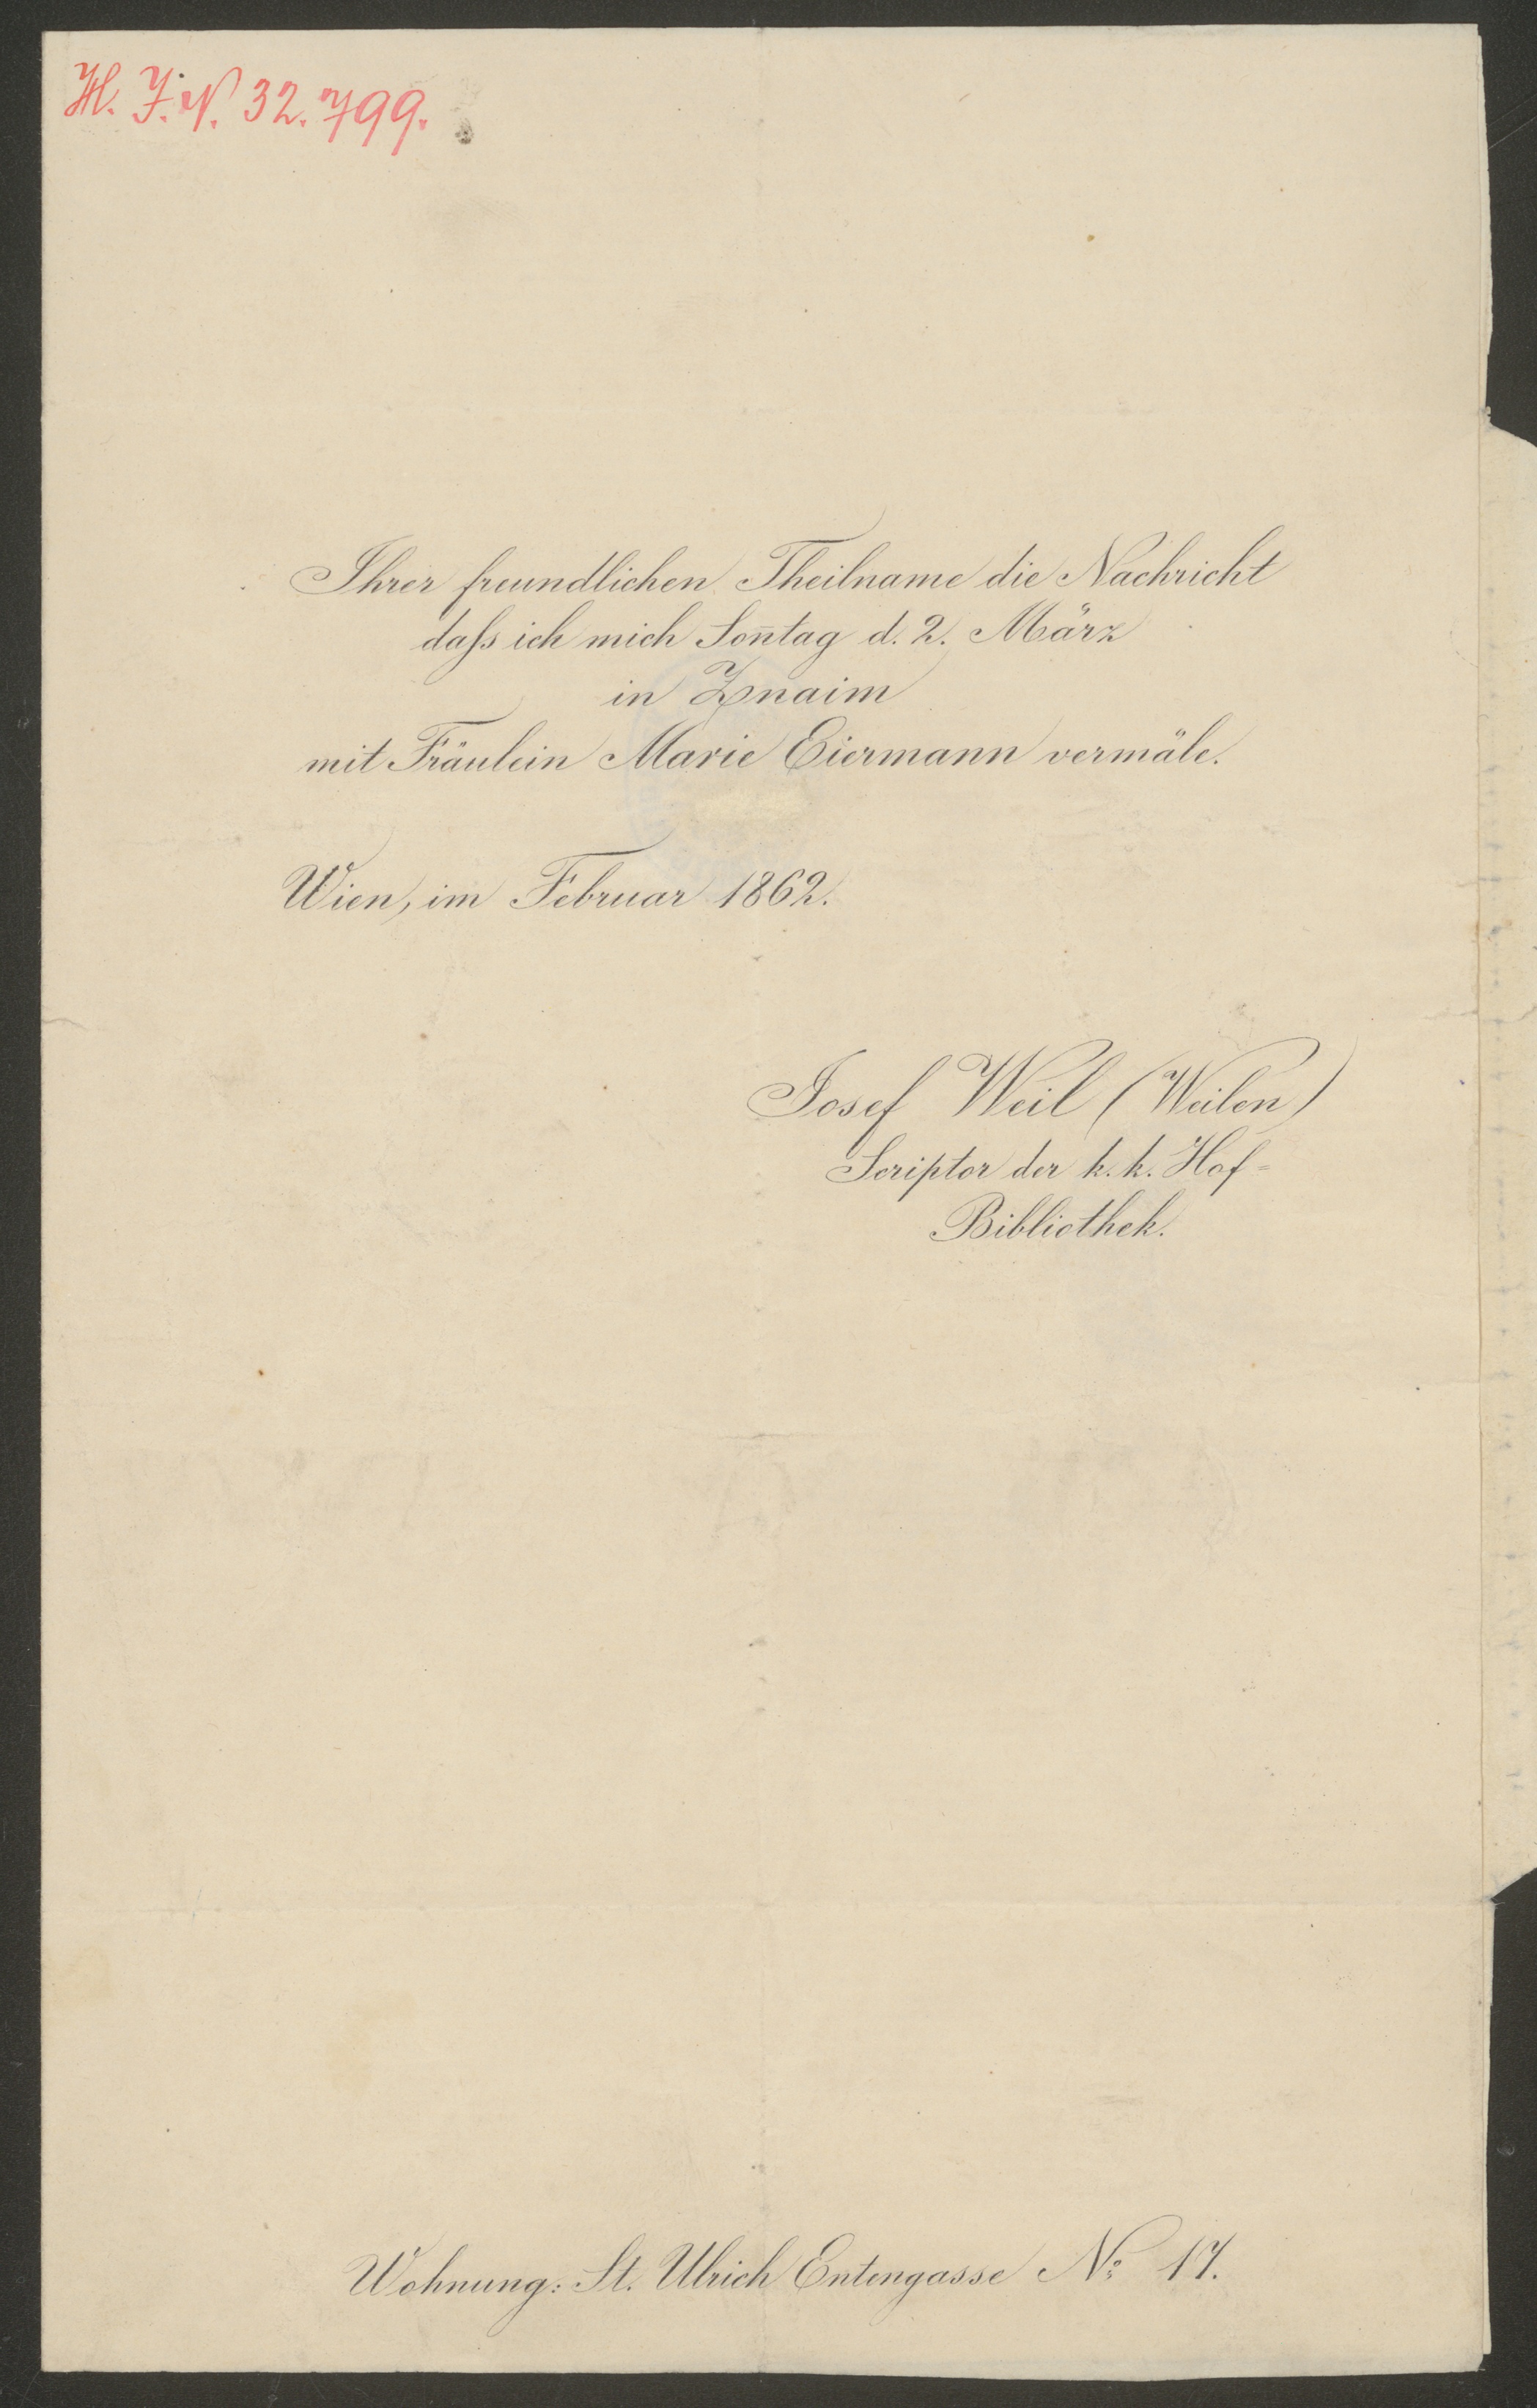 H. I. N. 32.799.
Ihrer freundlichen Theilname die Nachricht
daſs ich mich Son̄tag d. 2. März
in Znaim
mit Fräulein Marie Eiermann vermäle.
Wien, im Februar 1862.
Josef Weil (Weilen)
Scriptor der k. k. Hof=
Bibliothek.
Wohnung: St. Ulrich Entengasse No 17.